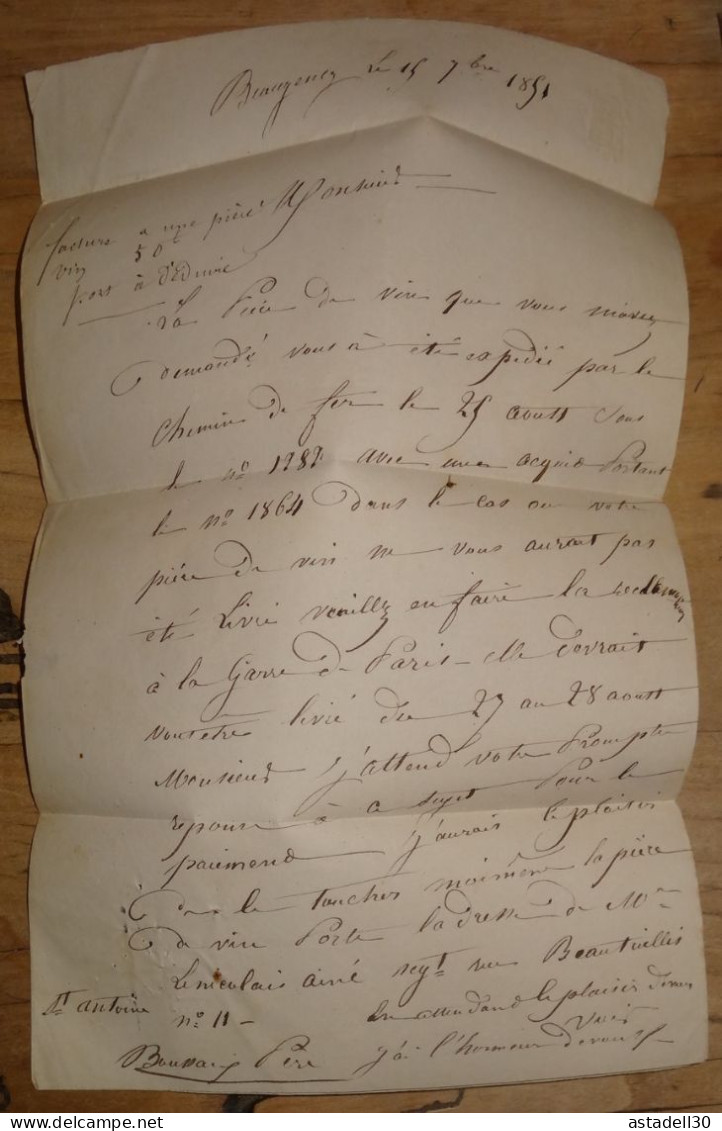 Beaugency le 15 7bre 1851
facture a une pièce Monsieur
vin 50 f
port à
La Pièce de vin que vous mavez
demandé vous à été expedié par le
chemin de fer le 25 aoust sous
le nº 1287 avec un acquid Portant
le nº 1864 dans le cas ou votre
pièce de vin ne vous aurait pas
été Livré veuillez en faire la
à la Garre de Paris elle devrait
vousetre livré du 27 au 28 aoust
Monsieur j'attend votre Prompte
reponse à ce sujet Pour le
paiment j'aurais le plaisir
de le toucher moimême la pièce
de vin Porte ladresse de Mr
ainé negt rue Beautreillis
St antoine nº 11 - En attendant le plaisir de vous
Voir
Père j'ai l'honneur de vous
astadell30